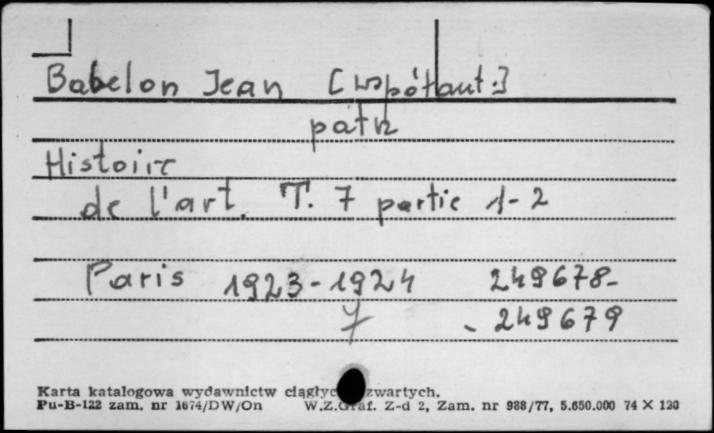 Babelon Jean [współaut.]
patrz
Histoire
de l'art. T. 7 partie 1-2
Paris 1923-1924 249678-
7 - 249679
Karta katalogowa wydawnictw ciągłyc zwartych.
Pu-B-122 zam. nr 1674/DW/On W.Z.Graf. Z-d 2, Zam. nr 988/77, 5.650.000 74 X 120